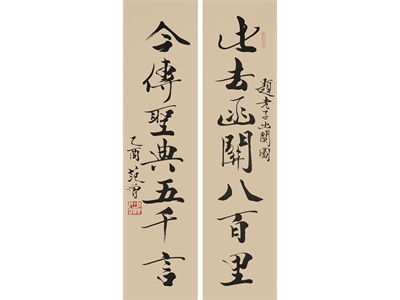 此去函關八百里
題老子出關圖
今傳聖典五千言
乙酉 范曾